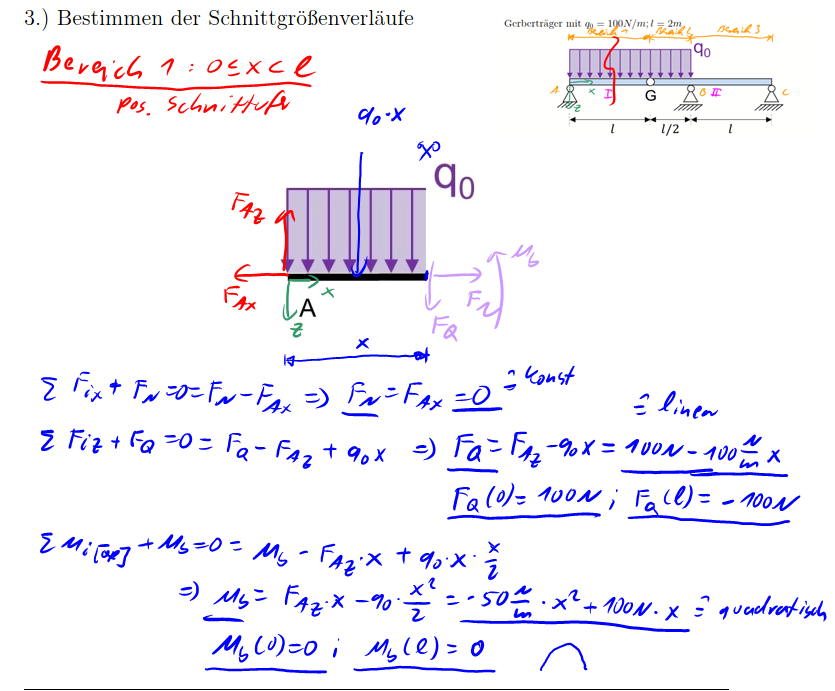 3.) Bestimmen der Schnittgrößenverläufe
Gerberträger mit q₀ = 100N/m; l = 2m
Bereich 1 Bereich 2 Bereich 3
q₀
A x I G B II C
z
l l/2 l
Bereich 1 : 0 ≤ x < l
pos. Schnittufer
q₀·x
q₀
F_Az
F_Ax
A
x
z
M_b
F_N
F_Q
x
Σ F_ix + F_N = 0 = F_N - F_Ax => F_N = F_Ax = 0 ≙ konst
≙ linear
Σ F_iz + F_Q = 0 = F_Q - F_Az + q₀x => F_Q = F_Az - q₀x = 100N - 100 N/m x
F_Q(0) = 100N ; F_Q(l) = -100N
Σ M_i + M_b = 0 = M_b - F_Az·x + q₀·x·x/2
=> M_b = F_Az·x - q₀·x²/2 = -50 N/m · x² + 100N·x ≙ quadratisch
M_b(0) = 0 ; M_b(l) = 0